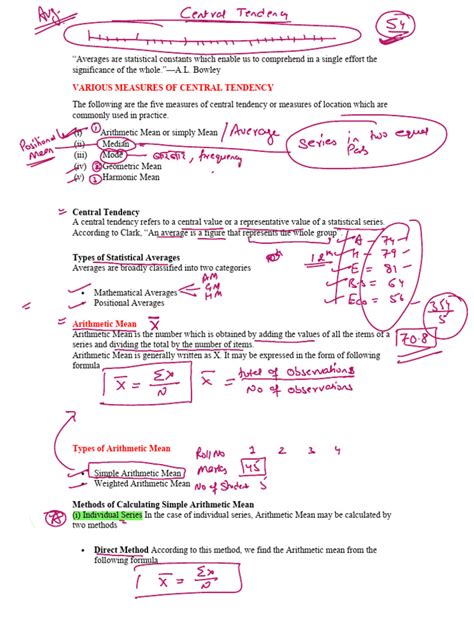 Avg.
Central Tendency
54
"Averages are statistical constants which enable us to comprehend in a single effort the
significance of the whole."—A.L. Bowley
VARIOUS MEASURES OF CENTRAL TENDENCY
The following are the five measures of central tendency or measures of location which are
commonly used in practice.
(i) ① Arithmetic Mean or simply Mean / Average
Positional Mean
(ii) Median
series in two equal
(iii) Mode frequency
(iv) ② Geometric Mean
(v) ③ Harmonic Mean
Central Tendency
A central tendency refers to a central value or a representative value of a statistical series.
According to Clark, "An average is a figure that represents the whole group".
A - 74
H - 79
Types of Statistical Averages
E = 81
Averages are broadly classified into two categories
B.S = 64
AM
• Mathematical Averages GM
HM
Eco = 56
• Positional Averages
354
5
Arithmetic Mean X̅
70.8
Arithmetic Mean is the number which is obtained by adding the values of all the items of a
series and dividing the total by the number of items.
Arithmetic Mean is generally written as X. It may be expressed in the form of following
formula
X̅ = Σx/N X̅ = total of observations / No of observations
Types of Arithmetic Mean
Roll No 1 2 3 4
• Simple Arithmetic Mean marks 45
• Weighted Arithmetic Mean No of Student 5
Methods of Calculating Simple Arithmetic Mean
(i) Individual Series In the case of individual series, Arithmetic Mean may be calculated by
two methods
• Direct Method According to this method, we find the Arithmetic mean from the
following formula
X̅ = Σx/N